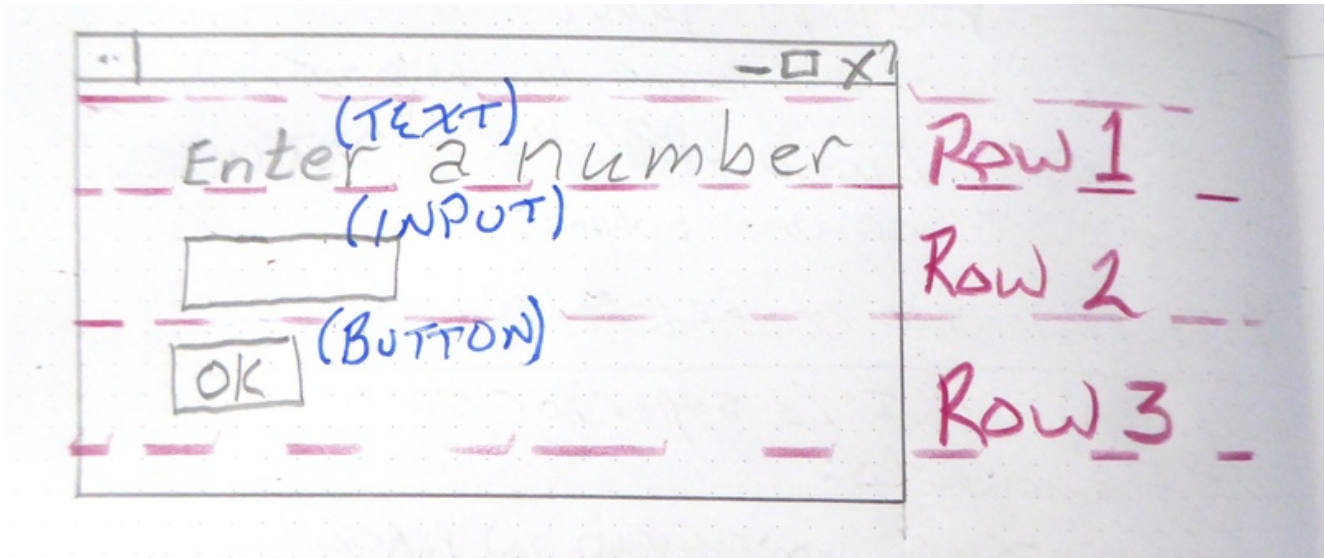 (TEXT)
Enter a number
Row 1
(INPUT)
Row 2
(BUTTON)
OK
Row 3